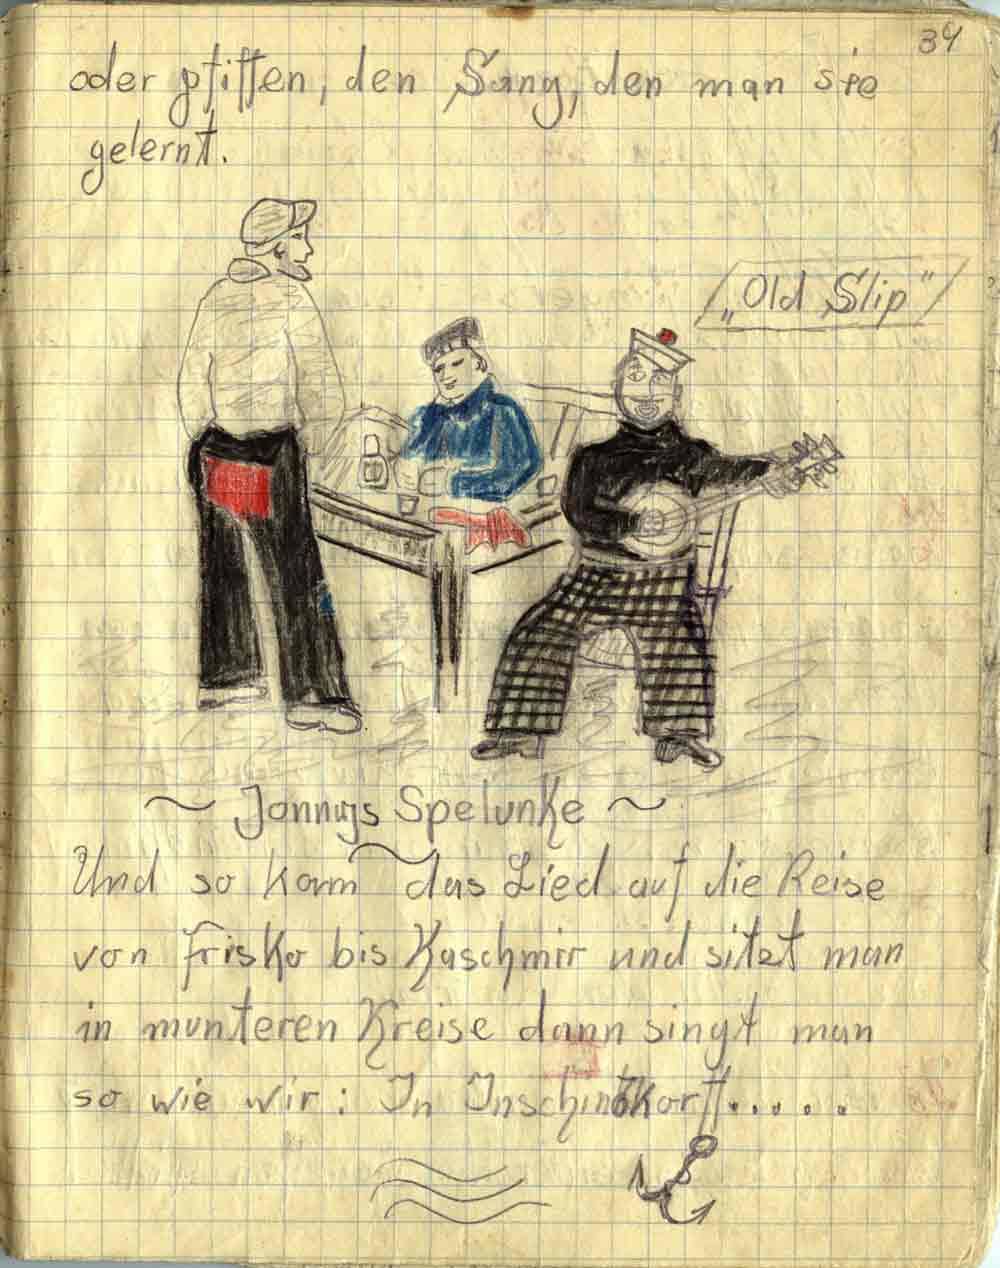 39
oder pfiffen, den Sang, den man sie
gelernt.
„Old Slip"
~ Jonnys Spelunke ~
Und so kam das Lied auf die Reise
von Frisko bis Kaschmir und sitzt man
in munteren Kreise dann singt man
so wie wir: In Inschinkorff.....